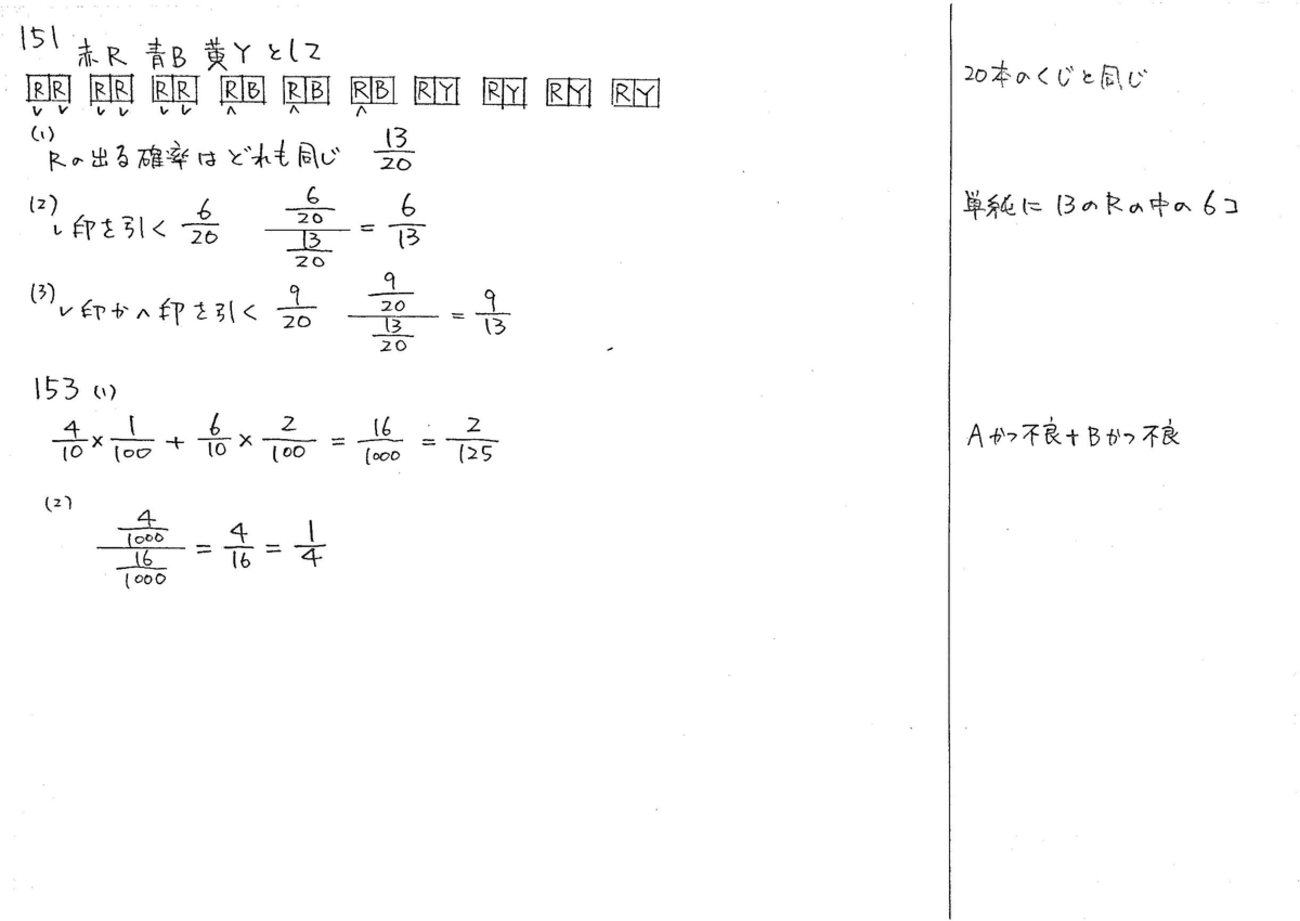 151 赤R 青B 黄Y として
RR RR RR RB RB RB RY RY RY RY
✓ ✓ ✓ ✓ ✓ ✓ ^ ^ ^
20本のくじと同じ
(1)
Rの出る確率はどれも同じ 13/20
(2) ✓印を引く 6/20 (6/20)/(13/20) = 6/13
単純に13のRの中の6コ
(3) ✓印か^印を引く 9/20 (9/20)/(13/20) = 9/13
153 (1)
4/10 × 1/100 + 6/10 × 2/100 = 16/1000 = 2/125
Aかつ不良+Bかつ不良
(2)
(4/1000)/(16/1000) = 4/16 = 1/4